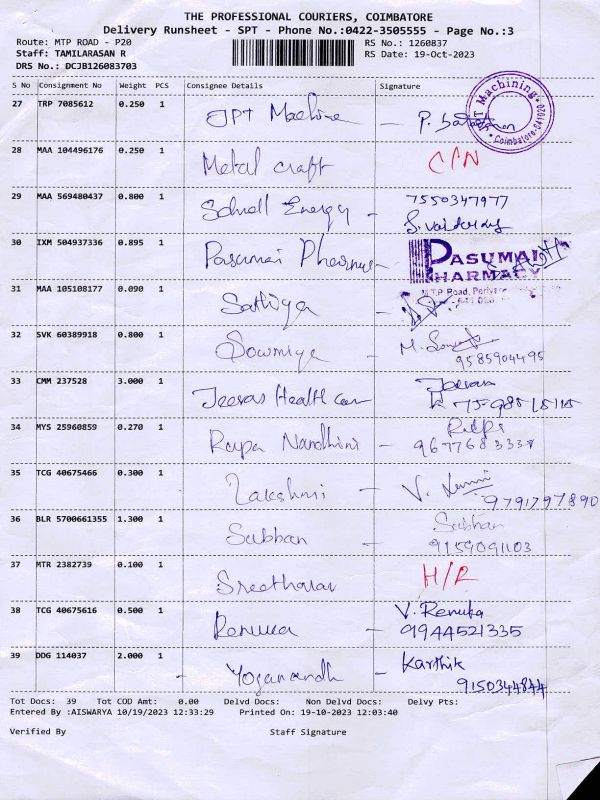 THE PROFESSIONAL COURIERS, COIMBATORE
Delivery Runsheet - SPT - Phone No.:0422-3505555 - Page No.:3
Route: MTP ROAD - P20 RS No.: 1260837
Staff: TAMILARASAN R RS Date: 19-Oct-2023
DRS No.: DCJB126083703
S No Consignment No Weight PCS Consignee Details Signature
27 TRP 7085612 0.250 1 JPT Machine - P.
Machining
Coimbatore-641020
28 MAA 104496176 0.250 1 Metal craft
29 MAA 569480437 0.800 1 Energy - 7550347977
30 IXM 504937336 0.895 1 Pasumai Pharmacy - PASUMAI
PHARMACY
M.T.P Road,
31 MAA 105108177 0.090 1 Sathiya -
32 SVK 60389918 0.800 1 Sowmiya - M.
9585904495
33 CMM 237528 3.000 1 Jeevas Health Care Jeevan
34 MYS 25960859 0.270 1 Rupa Nandhini -
35 TCG 40675466 0.300 1 Lakshmi - V.
9791797890
36 BLR 5700661355 1.300 1 Subban - Subhan
9159091103
37 MTR 2382739 0.100 1 Sreetharan H/R
38 TCG 40675616 0.500 1 Renuka - V. Renuka
9944521335
39 DDG 114037 2.000 1 - Yoganandh - Karthik
9150344844
Tot Docs: 39 Tot COD Amt: 0.00 Delvd Docs: Non Delvd Docs: Delvy Pts:
Entered By :AISWARYA 10/19/2023 12:33:29 Printed On: 19-10-2023 12:03:40
Verified By Staff Signature